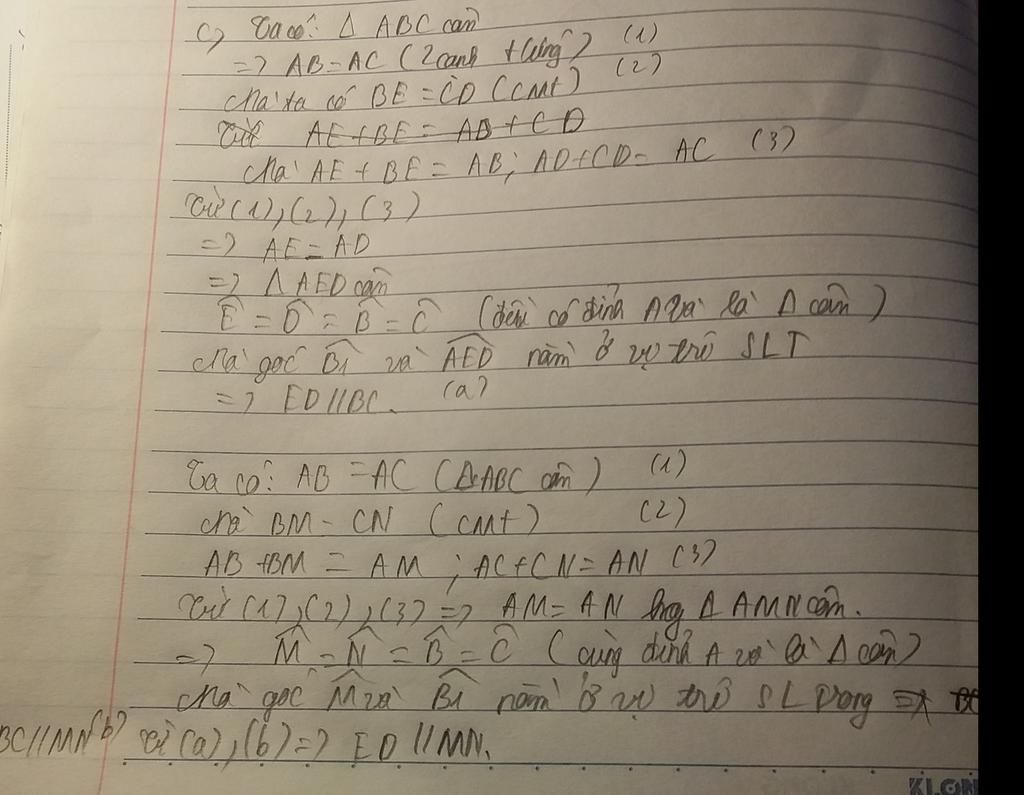 c) Ta có: Δ ABC cân
=> AB = AC (2 cạnh tứng) (1)
Mà ta có BE = CD (cmt) (2)
Từ AE + BE = AB + CD
Mà AE + BE = AB; AD + CD = AC (3)
Từ (1), (2), (3)
=> AE = AD
=> Δ AED cân
Ê = D̂ = B̂ = Ĉ (đều có đỉnh A và là Δ cân)
Mà góc B̂1 và AED nằm ở vị trí SLT
=> ED // BC. (a)
Ta có: AB = AC (Δ ABC cân) (1)
Mà BM = CN (cmt) (2)
AB + BM = AM ; AC + CN = AN (3)
Từ (1), (2), (3) => AM = AN hay Δ AMN cân.
=> M̂ = N̂ = B̂ = Ĉ (cùng đỉnh A và là Δ cân)
Mà góc M̂ và B̂1 nằm ở vị trí SL trong =>
BC // MN (b) Từ (a), (b) => ED // MN.
KLON